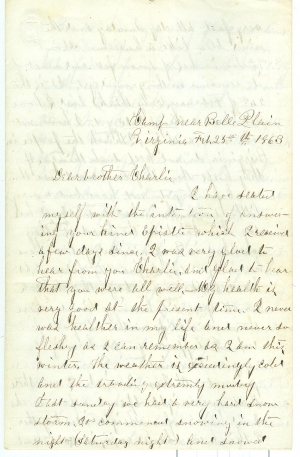 Camp near Belle Plain
Virginia Feb 25th 1863
Dear brother Charlie
I have seated
myself with the intention of answer-
ing your kind Epistle which I received
a few days since, I was very glad to
hear from you Charlie, and glad to hear
that you were all well. My health is
very good at the present time. I never
was healthier in my life and never so
fleshy as I can remember as I am this
winter, the weather is exceedingly cold
and the traveling extremly muddy
Last sunday we had a very hard snow
storm. It commenced snowing in the
night (Saturday night) and snowed